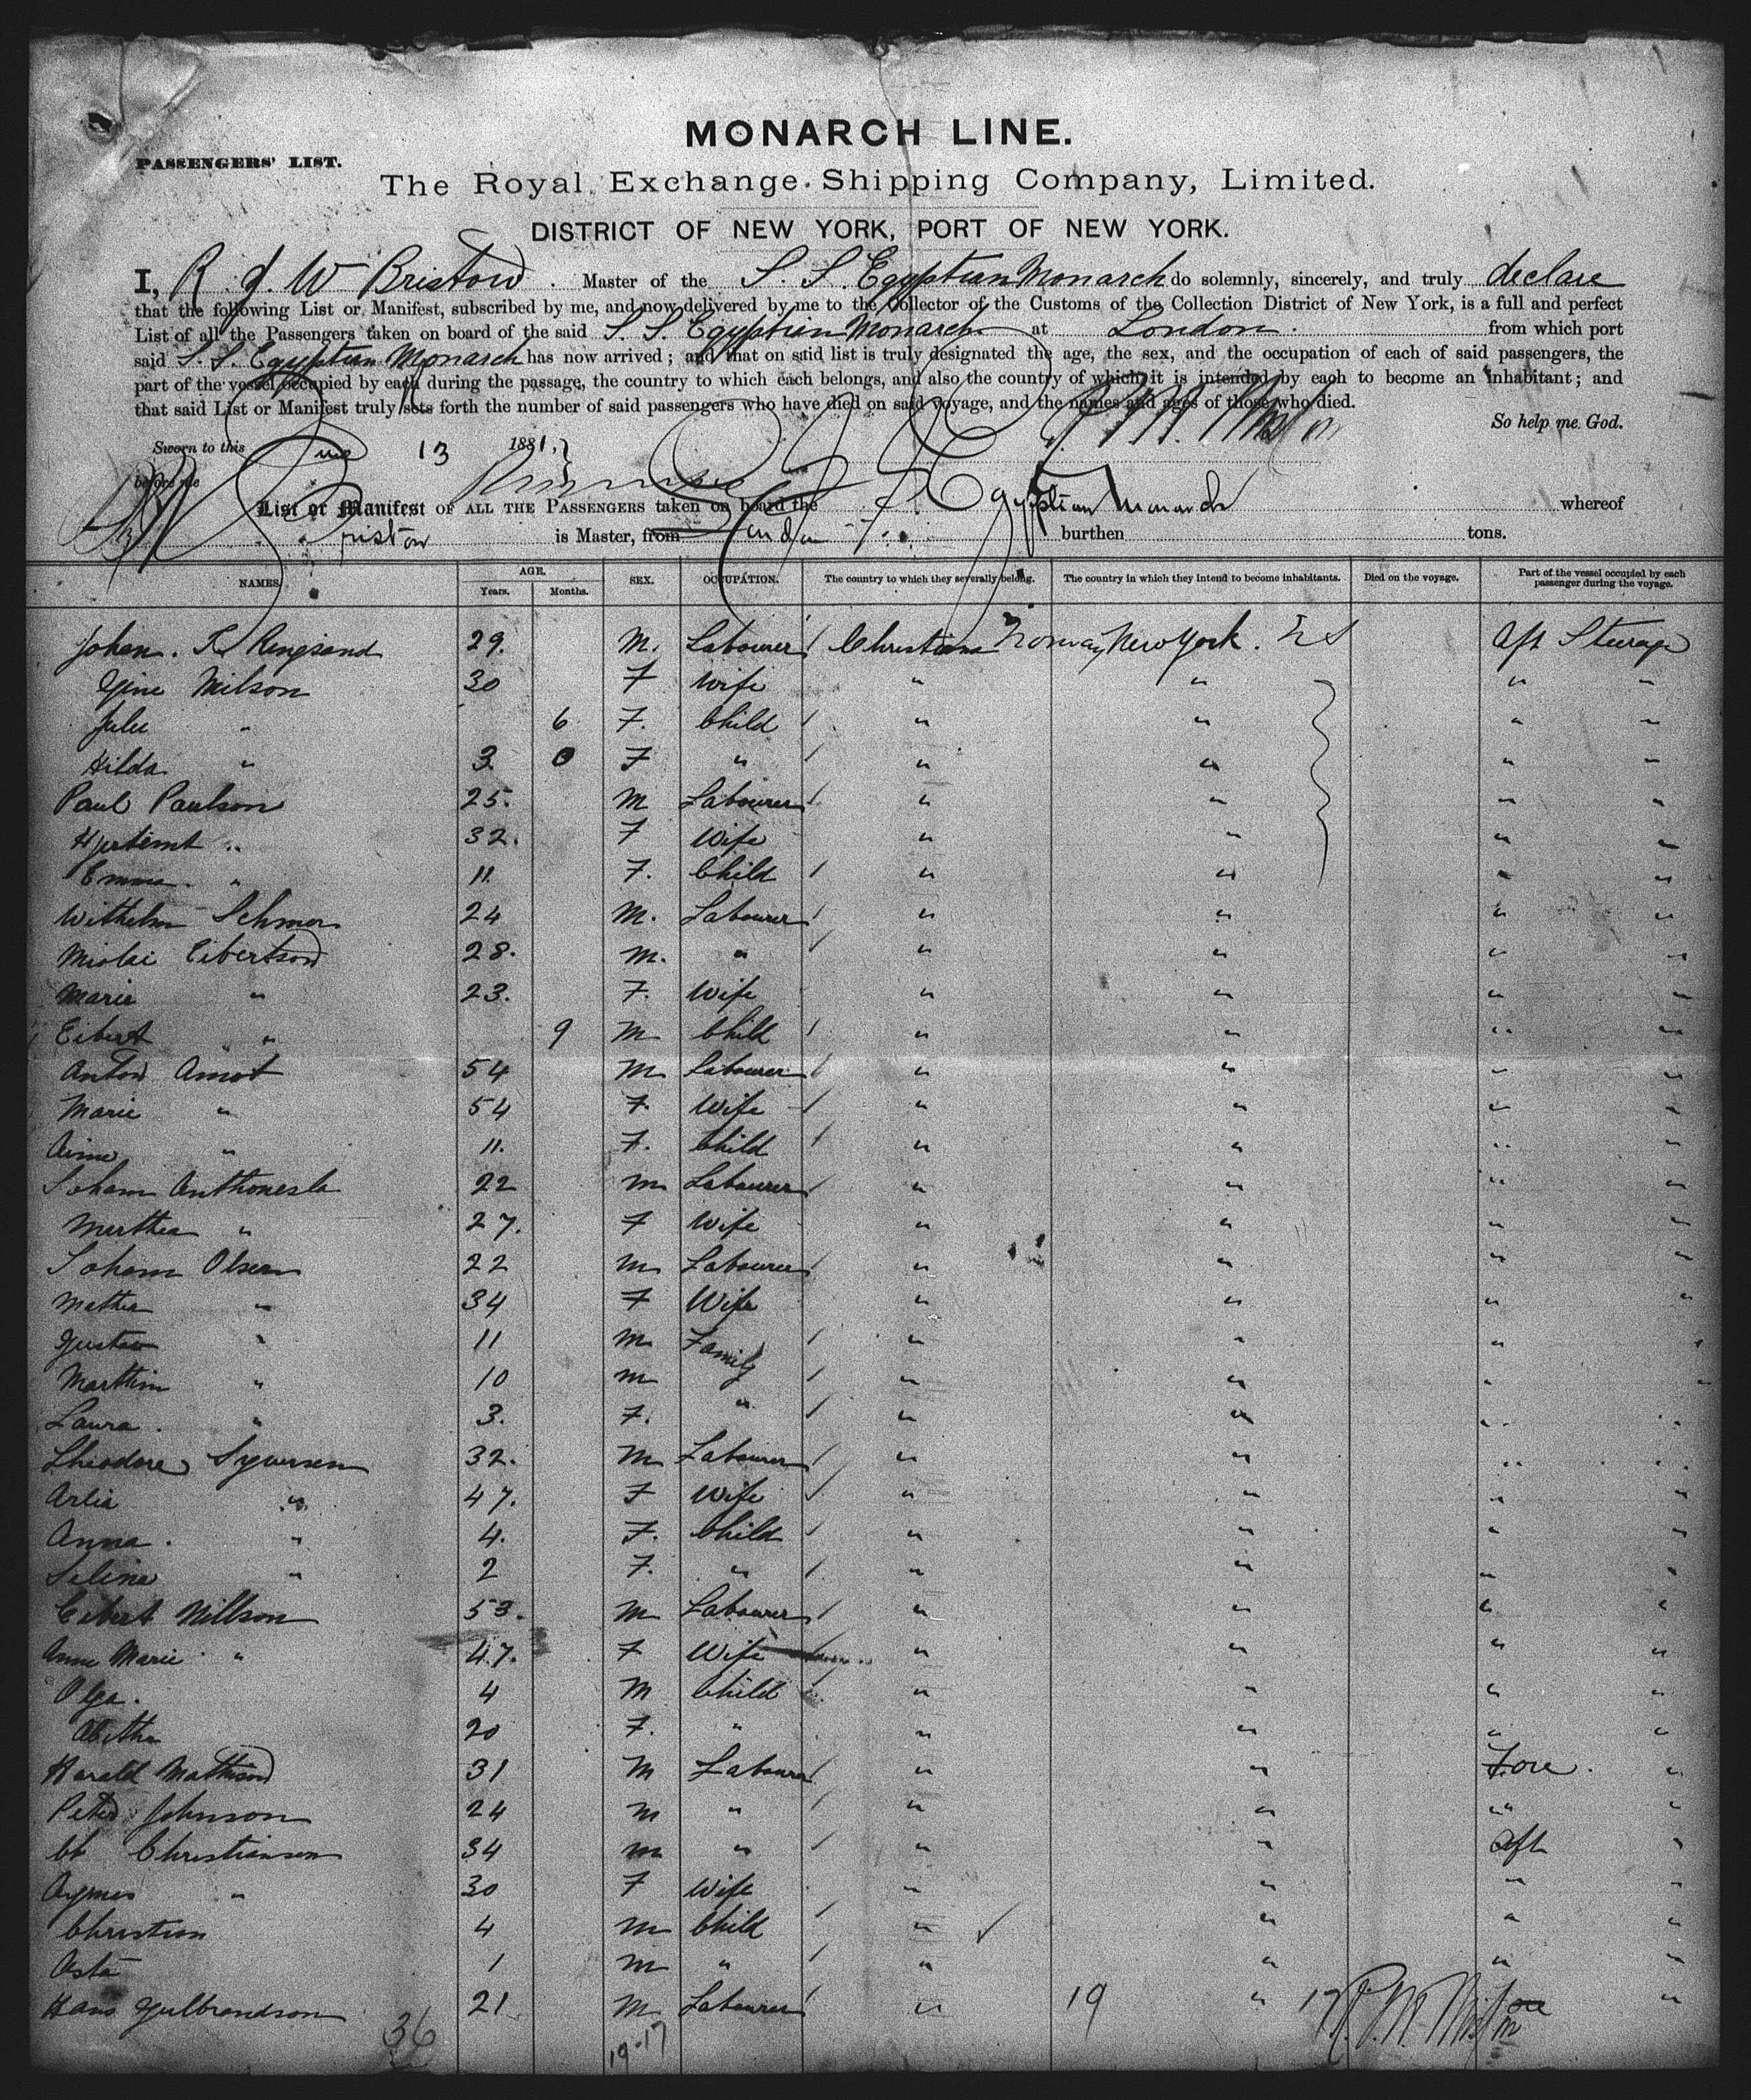 MONARCH LINE.
PASSENGERS' LIST.
The Royal Exchange Shipping Company, Limited.
DISTRICT OF NEW YORK, PORT OF NEW YORK.
I, R J W Bristow. Master of the S. S. Egyptian Monarch do solemnly, sincerely, and truly declare
that the following List or Manifest, subscribed by me, and now delivered by me to the Collector of the Customs of the Collection District of New York, is a full and perfect
List of all the Passengers taken on board of the said S. S. Egyptian Monarch at London. from which port
said S. S. Egyptian Monarch has now arrived; and that on said list is truly designated the age, the sex, and the occupation of each of said passengers, the
part of the vessel occupied by each during the passage, the country to which each belongs, and also the country of which it is intended by each to become an inhabitant; and
that said List or Manifest truly sets forth the number of said passengers who have died on said voyage, and the names and ages of those who died.
So help me God.
Sworn to this June 13 1881.
before me
List or Manifest OF ALL THE PASSENGERS taken on board the S. S. Egyptian Monarch whereof
Bristow is Master, from London burthen tons.
NAMES. AGE. Years. Months. SEX. OCCUPATION. The country to which they severally belong. The country in which they intend to become inhabitants. Died on the voyage. Part of the vessel occupied by each passenger during the voyage.
Johan. 29. M. Labourer Norway New York. Aft Steerage
Gine Nilson 30 F Wife " " " "
Julie " 6 F. Child " " " "
Hilda " 3 0 F " " " " "
Paul Paulson 25. M Labourer " " " "
" 32. F Wife " " " "
Emma. " 11. F. Child " " " "
Wilhelm 24 M. Labourer " " " "
28. M. " " " " "
Marie " 23. F. Wife " " " "
Eibert " 9 M Child " " " "
Anton Amot 54 M Labourer " " " "
Marie " 54 F. Wife " " " "
" 11. F. Child " " " "
Johann 22 M Labourer " " " "
Merthea " 27. F Wife " " " "
Johann Olsen 22 M Labourer " " " "
Mathea " 34 F Wife " " " "
Gustav " 11 M Family " " " "
Marthin " 10 M " " " "
Laura. " 3. F. " " " " "
Theodore Syversen 32. M Labourer " " " "
Arlia " 47. F Wife " " " "
Anna. " 4. F. Child " " " "
Selina " 2 F. " " " " "
Eibert Nillson 53. M Labourer " " " "
Anne Marie " 47. F Wife " " " "
Olga. 4 M Child " " " "
20 F. " " " " "
Harald Mathison 31 M Labourer " " Fore. "
Peter Johnson 24 M " " " " "
Christiansen 34 M " " " Aft "
" 30 F Wife " " " "
Christian 4 M Child " " " "
Asta 1 M " " " " "
Hans Gulbrandson 21 M Labourer " 19 " 17 "
36
19-17